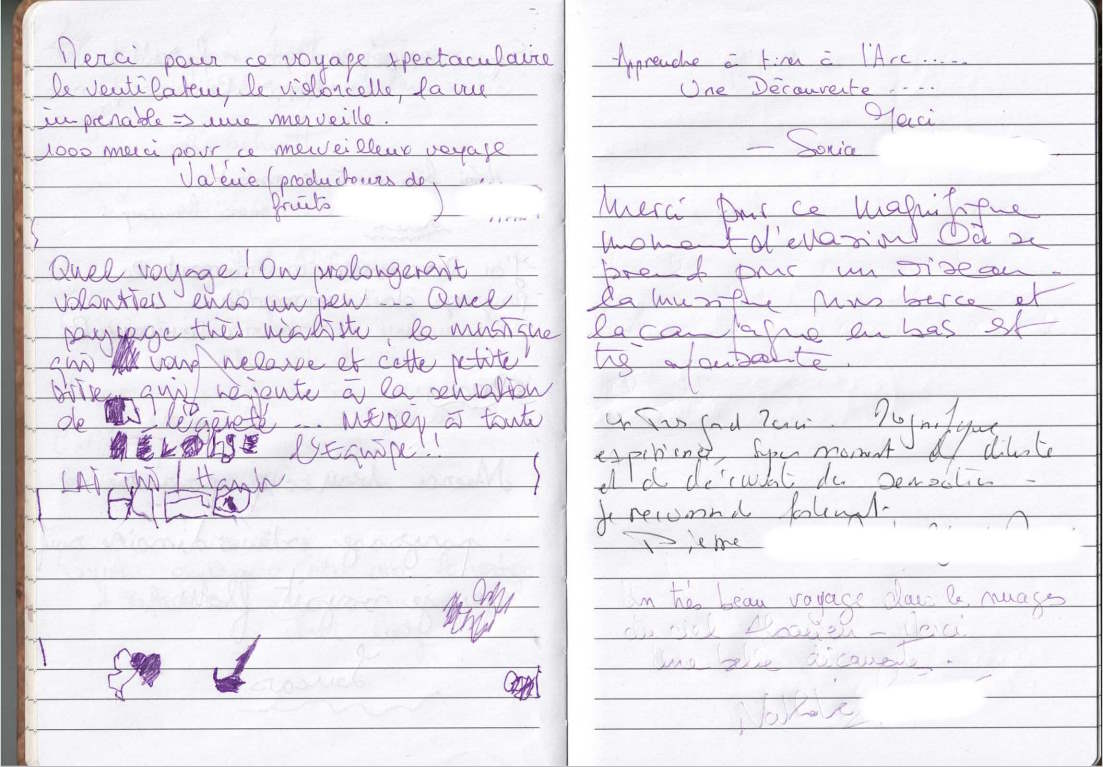 Merci pour ce voyage spectaculaire
le ventilateur, le violoncelle, la vue
imprenable => une merveille.
1000 merci pour ce merveilleux voyage
Valérie (producteurs de
fruits )
Quel voyage! On prolongerait
volontiers enco un peu. Quel
paysage très réaliste, la musique
qui vous relaxe et cette petite
brise qui rajoute à la sensation
de légèreté ... MERCI à toute
l'Equipe!!
LAI THI
Apprendre à tirer à l'Arc .....
Une Découverte ....
Merci
- Sonia
Merci pour ce magnifique
moment d'evasion Où se
prend pour un oiseau.
la musique nous berce et
la campagne en bas est
très
un Très grand Merci. Magnifique
expérience, super moment de détente
et de découverte de sensation -
je recommande fortement.
Un très beau voyage dans les nuages
du ciel - Merci
une belle découverte.